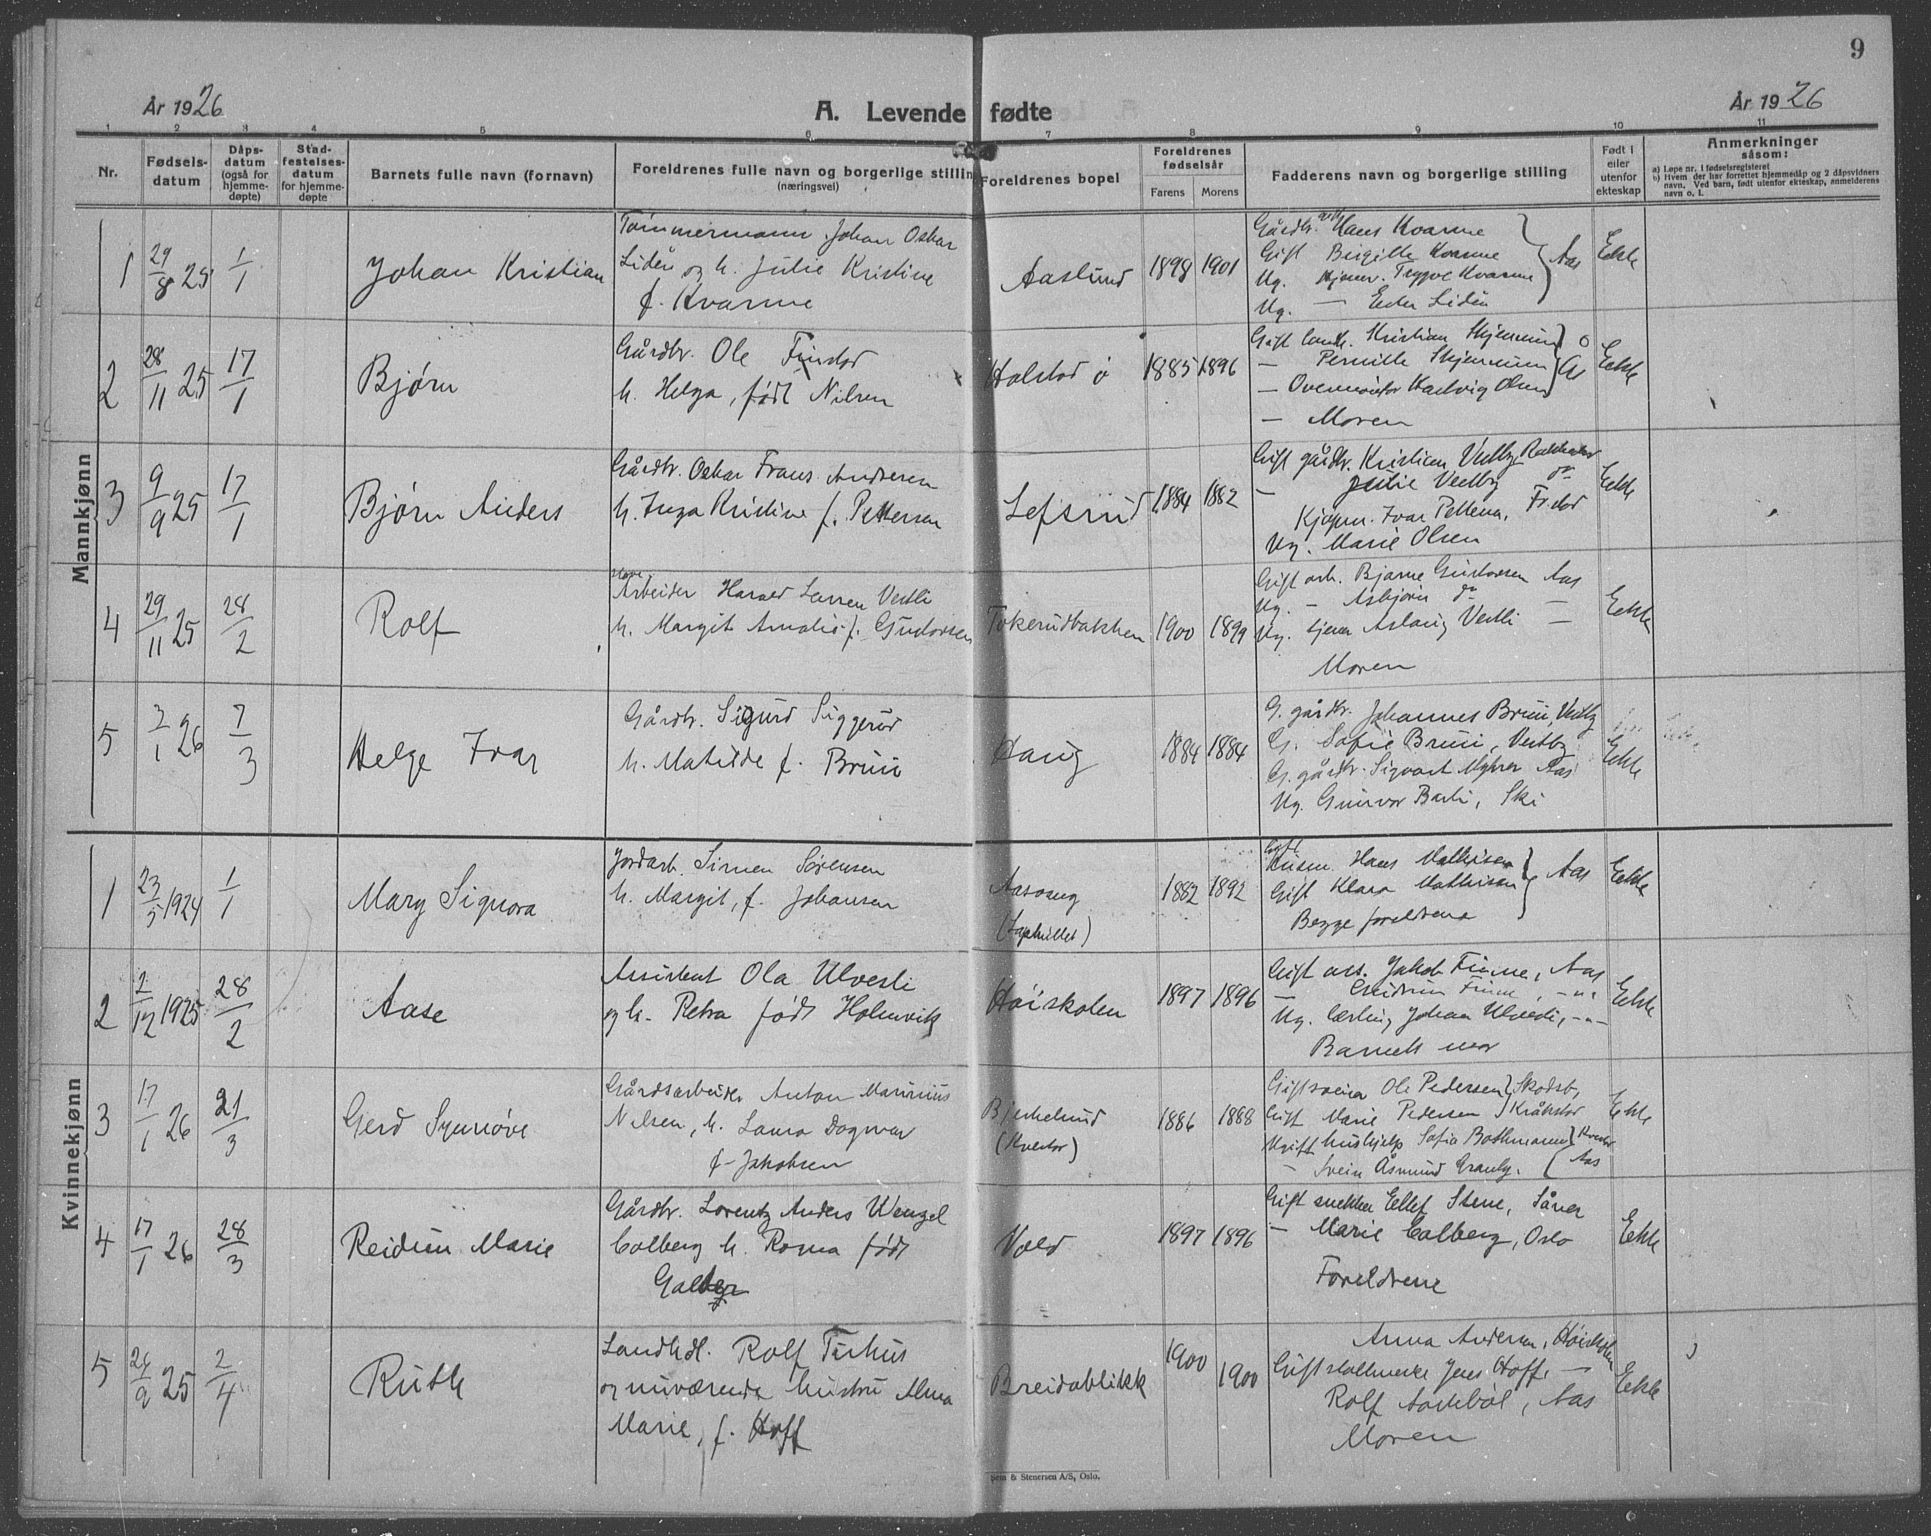 9
År 1926
A. Levende fødte
År 1926
1 2 3 4 5 6 7 8 9 10 11
Nr.
Fødsels-
datum
Dåps-
datum
(også for
hjemme-
døpte)
Stad-
festelses-
datum
for hjemme-
døpte
Barnets fulle navn (fornavn)
Foreldrenes fulle navn og borgerlige stilling
(næringsvei)
Foreldrenes bopel
Foreldrenes
fødselsår
Farens Morens
Fadderens navn og borgerlige stilling
Født i
eller
utenfor
ekteskap
Anmerkninger
såsom:
a) Løpe nr. i fødselsregisteret
b) Hvem der har forrettet hjemmedåp og 2 dåpsvidners
navn. Ved barn, født utenfor ekteskap, anmelderens
navn o. l.
Mannkjønn
1 29/8 25 1/1 Johan Kristian
Tømmermann Johan Oskar
Lidén og h. Julie Kristine
f. Kvarme
Aaslund 1898 1901
Gårdbr. Hans Kvarme
Gift Birgitte Kvarme
Ug. Trygve Kvarme
Ug. — Lidén
Aas
Ekte
2 28/11 25 17/1 Bjørn
Gårdbr. Ole Finstad
h. Helga, født Nilsen
Holstad ø 1885 1896
Gift landh. Kristian Skjennum
— Pernille Skjennum
— Overmontør Hartvig Olsen
— Moren
Ekte
3 9/9 25 17/1 Bjørn Anders
Gårdbr. Oskar Frans Andresen
h. Inga Kristine f. Pettersen
Lefsrud 1884 1882
Gift gårdbr. Kristian Vestby
— Julie Vestby do
Kjøpm. Ivar
Ug. Marie Olsen
Ekte
4 29/11 25 28/2 Rolf
Arbeider Harald Larsen Vestli
h. Margit Amalie f. Gustavsen
Tokerudbakken 1900 1899
Gift arb. Bjarne Gustavsen Aas
Ug. — Asbjørn do —
Ug. Aslaug Vestli —
Moren
Ekte
5 2/1 26 7/3 Helge Ivar
Gårdbr. Sigurd Siggerud
h. Matilde f. Bruu
Haug 1884 1884
G. gårdbr. Johannes Bruu, Vestby
G. Sofie Bruu, Vestby
G. gårdbr. Sigvart Myhrer Aas
Ug. Gunvor Barli, Ski
Ekte
Kvinnekjønn
1 23/5 1924 1/1 Mary Signora
Jordarb. Simen Sørensen
h. Margit, f. Johansen
Aasvang
1882 1892
Gift
Hans Mathisen
Gift Klara Mathisen
Begge foreldrene
Aas
Ekte
2 2/12 1925 28/2 Aase
Assistent Ola Ulvesli
og h. Petra født Holmvik
Høiskolen 1897 1896
Gift ass. Jakob Finne, Aas
— Gudrun Finne, —"—
Ug. Johan Ulvesli, —"—
Barnets mor
Ekte
3 17/1 26 21/3 Gerd Synnøve
Gårdsarbeider Anton Marinius
Nilsen, h. Laura Dagmar
f. Jakobsen
Bjerkelund
(Kvestor)
1886 1888
Ole Pedersen
Gift Marie Pedersen
Kråkstad
Ugift hushjelp Sofie Bothmann
— Svein Åsmund Granly.
Aas
Ekte
4 17/1 26 28/3 Reidun Marie
Gårdbr. Lorentz Anders Wenzel
Colberg h. Roma født
Vold 1897 1896
Gift snekker Ellef Stene, Såner
— Marie Colberg, Oslo
Foreldrene
Ekte
5 24/9 25 2/4 Ruth
Landhdl. Rolf Turhus
og nuværende hustru Alma
Marie, f. Hoff
Breidablikk 1900 1900
Anna Andersen, Høiskolen
Gift Jens Hoff, —
Rolf Askebøl, Aas
Moren
Ekte
Sem & Stenersen A/S, Oslo.